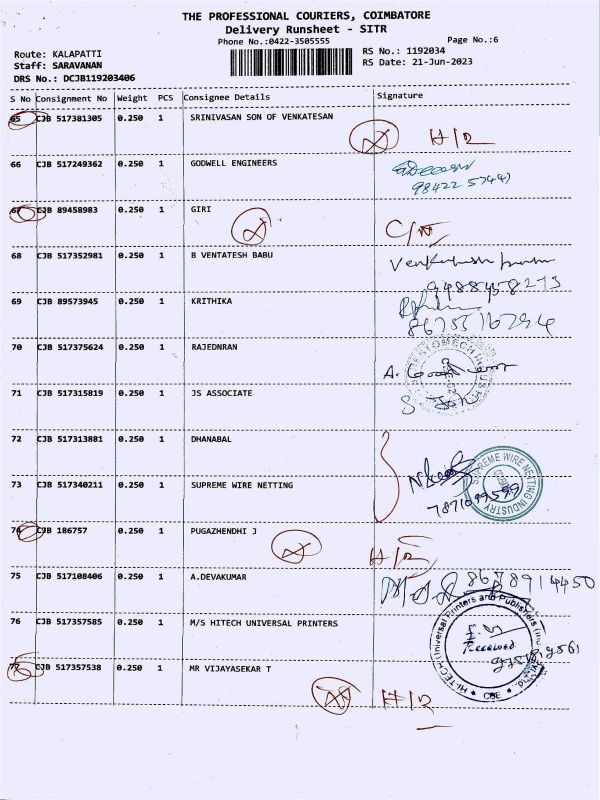 THE PROFESSIONAL COURIERS, COIMBATORE
Delivery Runsheet - SITR
Phone No.:0422-3505555
Page No.:6
Route: KALAPATTI
RS No.: 1192034
Staff: SARAVANAN
RS Date: 21-Jun-2023
DRS No.: DCJB119203406
S No Consignment No Weight PCS Consignee Details Signature
65 CJB 517381305 0.250 1 SRINIVASAN SON OF VENKATESAN
66 CJB 517249362 0.250 1 GODWELL ENGINEERS
67 CJB 89458983 0.250 1 GIRI
68 CJB 517352981 0.250 1 B VENTATESH BABU
69 CJB 89573945 0.250 1 KRITHIKA
70 CJB 517375624 0.250 1 RAJEDNRAN
71 CJB 517315819 0.250 1 JS ASSOCIATE
72 CJB 517313881 0.250 1 DHANABAL
73 CJB 517340211 0.250 1 SUPREME WIRE NETTING
SUPREME WIRE NETTING INDUSTRY
74 CJB 186757 0.250 1 PUGAZHENDHI J
75 CJB 517108406 0.250 1 A.DEVAKUMAR
8678914450
76 CJB 517357585 0.250 1 M/S HITECH UNIVERSAL PRINTERS
Received
CBE
77 CJB 517357538 0.250 1 MR VIJAYASEKAR T